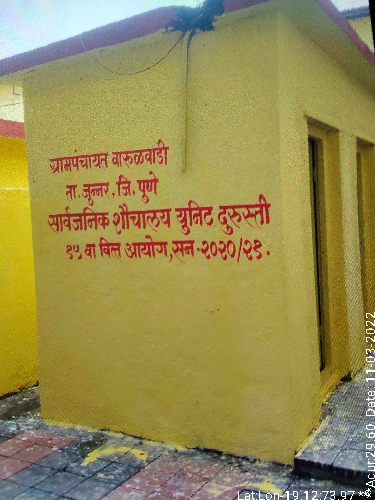 ग्रामपंचायत वारुळवाडी
ता. जुन्नर. जि. पुणे
सार्वजनिक शौचालय युनिट दुरुस्ती
१५ वा वित्त आयोग, सन-२०२०/२१.
LatLon-19.12.73.97 **
Acur29.60 Date. 11-03-2022